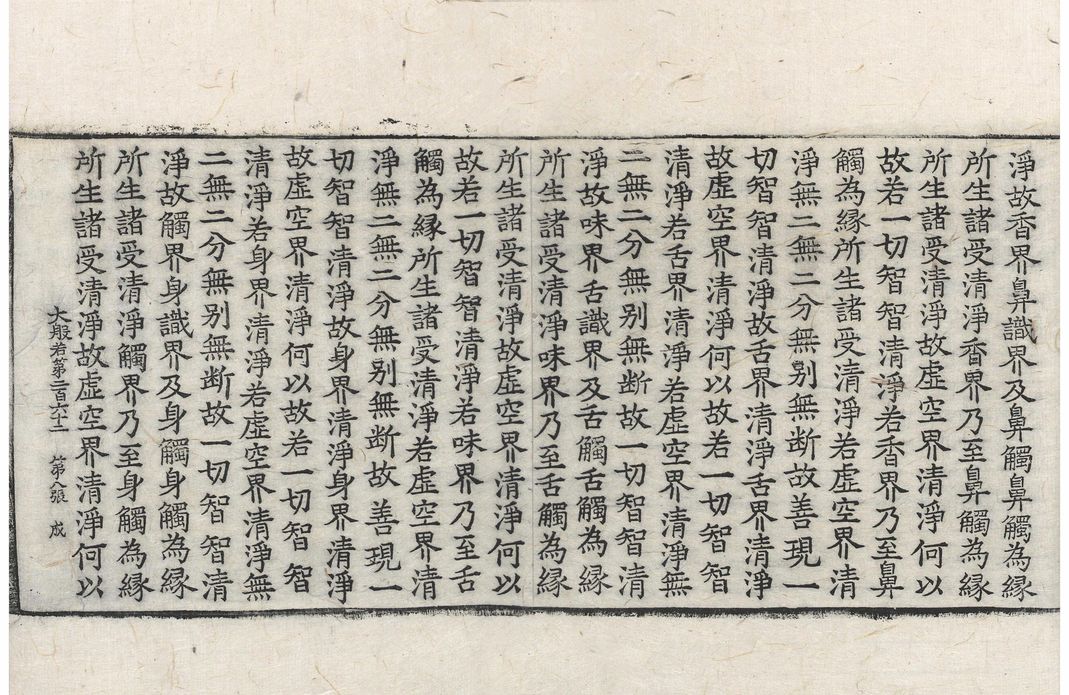 淨故香界鼻識界及鼻觸鼻觸為縁
所生諸受清淨香界乃至鼻觸為縁
所生諸受清淨故虛空界清淨何以
故若一切智智清淨若香界乃至鼻
觸為縁所生諸受清淨若虛空界清
淨無二無二分無别無断故善現一
切智智清淨故舌界清淨舌界清淨
故虛空界清淨何以故若一切智智
清淨若舌界清淨若虛空界清淨無
二無二分無别無断故一切智智清
淨故味界舌識界及舌觸舌觸為縁
所生諸受清淨味界乃至舌觸為縁
所生諸受清淨故虛空界清淨何以
故若一切智智清淨若味界乃至舌
觸為縁所生諸受清淨若虛空界清
淨無二無二分無别無断故善現一
切智智清淨故身界清淨身界清淨
故虛空界清淨何以故若一切智智
清淨若身界清淨若虛空界清淨無
二無二分無别無断故一切智智清
淨故觸界身識界及身觸身觸為縁
所生諸受清淨觸界乃至身觸為縁
所生諸受清淨故虛空界清淨何以
大般若第二百六十二 第八張 成